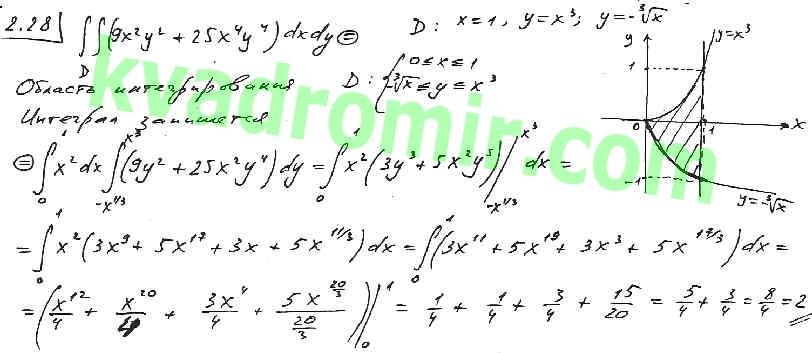 2.28 ∬_D (9x²y² + 25x⁴y⁴) dxdy ⊜ D: x=1, y=x³; y=-∛x
Область интегрирования D: { 0≤x≤1
-∛x ≤ y ≤ x³
Интеграл запишется
⊜ ∫₀¹ x² dx ∫_{-x^{1/3}}^{x³} (9y² + 25x²y⁴) dy = ∫₀¹ x² (3y³ + 5x²y⁵) |_{-x^{1/3}}^{x³} dx =
= ∫₀¹ x² (3x⁹ + 5x¹⁷ + 3x + 5x^{11/3}) dx = ∫₀¹ (3x¹¹ + 5x¹⁹ + 3x³ + 5x^{17/3}) dx =
= (x¹²/4 + x²⁰/4 + 3x⁴/4 + 5x^{20/3}/(20/3)) |₀¹ = 1/4 + 1/4 + 3/4 + 15/20 = 5/4 + 3/4 = 8/4 = 2
y
y=x³
1
0
1
x
-1
y=-∛x
kvadromir.com